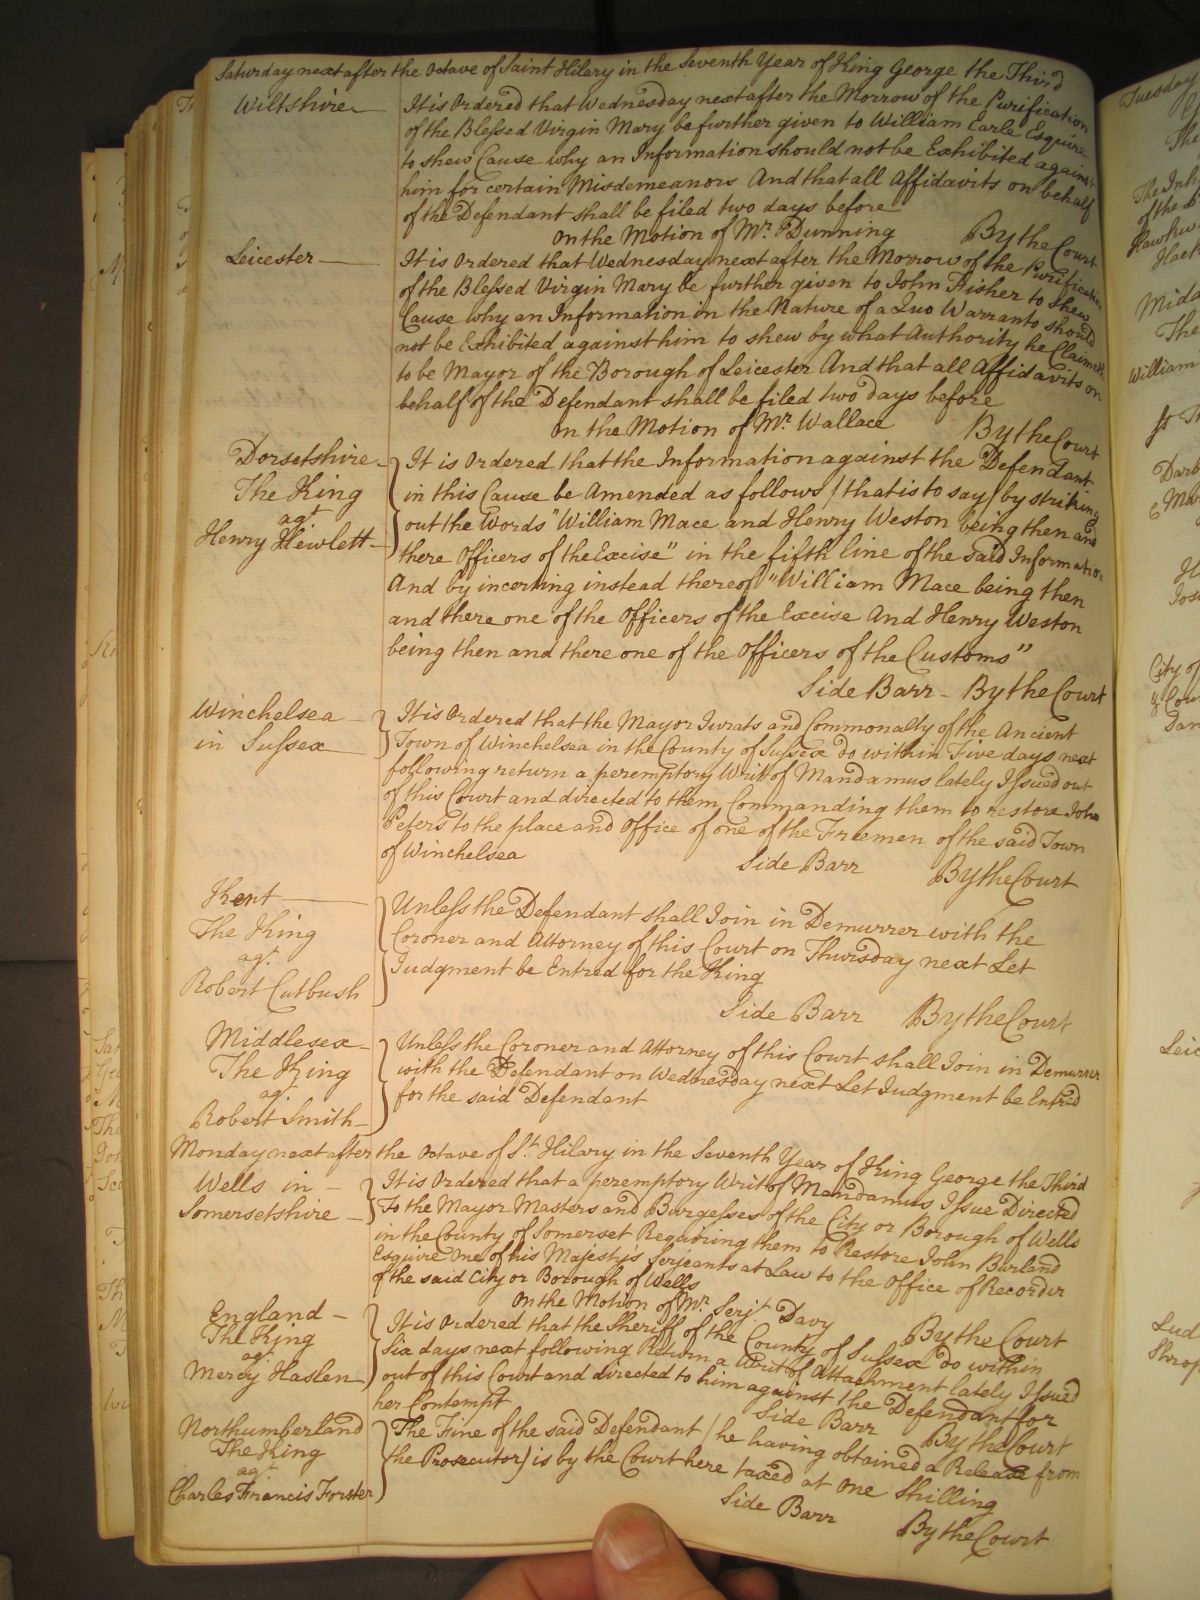 Saturday next after the Octave of Saint Hilary in the Seventh Year of King George the Third
Wiltshire
It is Ordered that Wednesday next after the Morrow of the Purification
of the Blessed Virgin Mary be further given to William Earle Esquire
to shew Cause why an Information should not be Exhibited against
him for certain Misdemeanors And that all Affidavits on behalf
of the Defendant shall be filed two days before
On the Motion of Mr. Dunning By the Court
Leicester
It is Ordered that Wednesday next after the Morrow of the Purification
of the Blessed Virgin Mary be further given to John Fisher to shew
Cause why an Information in the Nature of a Quo Warranto should
not be Exhibited against him to shew by what Authority he Claimeth
to be Mayor of the Borough of Leicester And that all Affidavits on
behalf of the Defendant shall be filed two days before
On the Motion of Mr. Wallace By the Court
Dorsetshire
The King
agt.
Henry Hewlett
It is Ordered that the Information against the Defendant
in this Cause be Amended as follows (that is to say) by striking
out the Words "William Mace and Henry Weston being then and
there Officers of the Excise" in the fifth line of the said Information
And by incerting instead thereof "William Mace being then
and there one of the Officers of the Excise And Henry Weston
being then and there one of the Officers of the Customs"
Side Barr - By the Court
Winchelsea
in Sussex
It is Ordered that the Mayor Jurats and Commonalty of the Ancient
Town of Winchelsea in the County of Sussex do within Five days next
following return a peremptory Writ of Mandamus lately Issued out
of this Court and directed to them Commanding them to restore John
Peters to the place and Office of one of the Freemen of the said Town
of Winchelsea
Side Barr By the Court
Kent
The King
agt.
Robert Cutbush
Unless the Defendant shall Join in Demurrer with the
Coroner and Attorney of this Court on Thursday next Let
Judgment be Entred for the King
Side Barr By the Court
Middlesex
The King
agt.
Robert Smith
Unless the Coroner and Attorney of this Court shall Join in Demurrer
with the Defendant on Wednesday next Let Judgment be Entred
for the said Defendant
Monday next after the Octave of St. Hilary in the Seventh Year of King George the Third
Wells in
Somersetshire
It is Ordered that a peremptory Writ of Mandamus Issue Directed
To the Mayor Masters and Burgesses of the City or Borough of Wells
in the County of Somerset Requiring them to Restore John Burland
Esquire one of his Majestys Serjeants at Law to the Office of Recorder
of the said City or Borough of Wells
On the Motion of Mr. Serjt. Davy By the Court
England
The King
agt.
Mercy Haslen
It is Ordered that the Sheriff of the County of Sussex do within
Six days next following Return a Writ of Attachment lately Issued
out of this Court and directed to him against the Defendant for
her Contempt
Side Barr By the Court
Northumberland
The King
agt.
Charles Francis Forster
The Fine of the said Defendant (he having obtained a Release from
the Prosecutor) is by the Court here taxed at one Shilling
Side Barr By the Court
Tuesday
William
City of